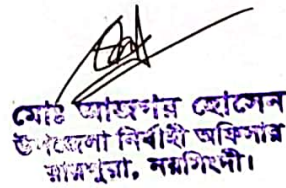 মোঃ আজগর হোসেন
উপজেলা নির্বাহী অফিসার
রায়পুরা, নরসিংদী।